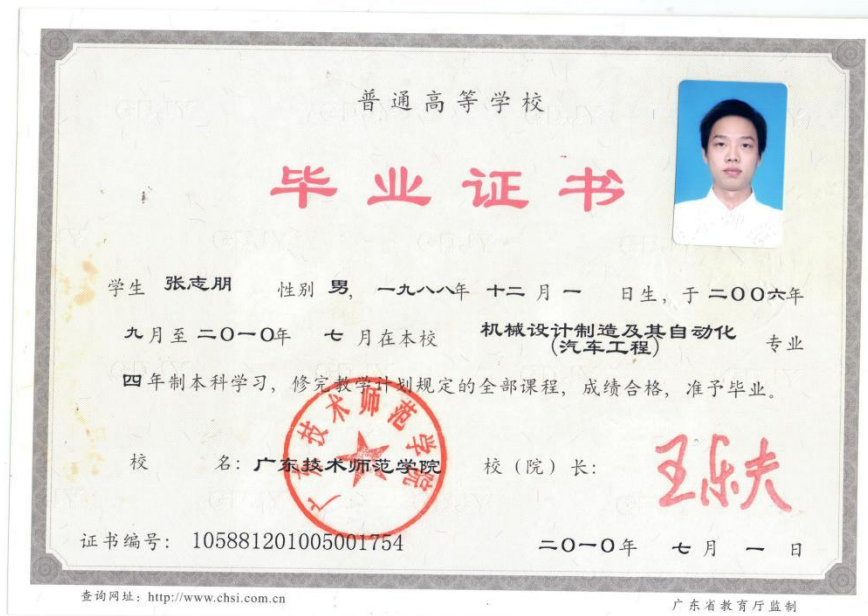 普通高等学校
毕业证书
学生 张志朋 性别 男，一九八八年 十二 月 一 日生，于 二〇〇六年
九月至 二〇一〇年 七 月在本校 机械设计制造及其自动化(汽车工程) 专业
四年制本科学习，修完教学计划规定的全部课程，成绩合格，准予毕业。
广东技术师范学院
校 名：广东技术师范学院 校（院）长：王乐夫
证书编号：105881201005001754 二〇一〇年 七 月 一 日
查询网址：http://www.chsi.com.cn 广东省教育厅监制